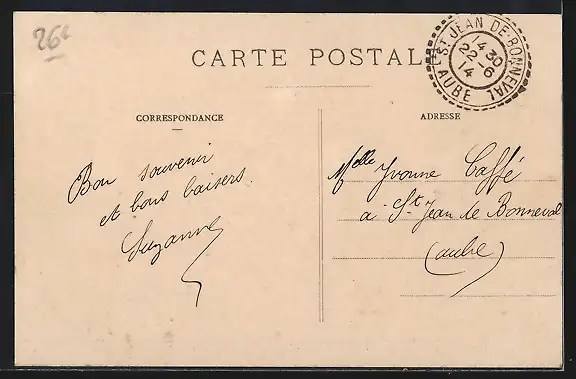 26c
CARTE POSTALE
ST JEAN-DE-BONNEVAL
14 30
22 -6
14
AUBE
CORRESPONDANCE
Bon souvenir
et bons baisers.
Suzanne
ADRESSE
Melle Yvonne Caffé
a St Jean de Bonneval
(aube)